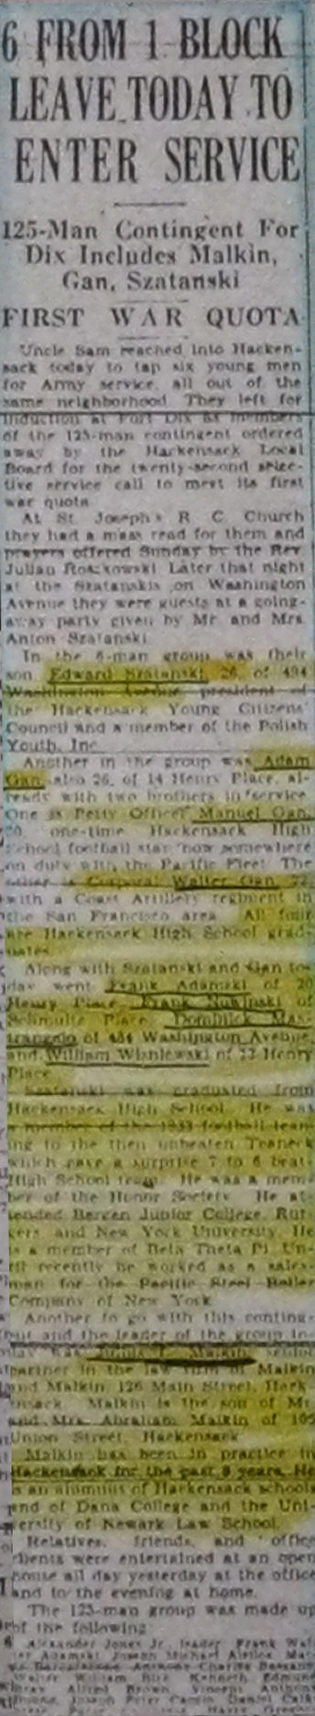 6 FROM 1 BLOCK
LEAVE TODAY TO
ENTER SERVICE
125-Man Contingent For
Dix Includes Malkin,
Gan, Szatanski
FIRST WAR QUOTA
Uncle Sam reached into Hacken-
sack today to tap six young men
for Army service, all out of the
same neighborhood. They left for
induction at Fort Dix as members
of the 125-man contingent ordered
away by the Hackensack Local
Board for the twenty-second selec-
tive service call to meet its first
war quota.
At St. Joseph's R. C. Church
they had a mass read for them and
prayers offered Sunday by the Rev.
Julian Later that night
at the Szatanskis on Washington
Avenue they were guests at a going-
away party given by Mr. and Mrs.
Anton Szatanski.
In the 6-man group was their
son Edward Szatanski, 26, of 494
Washington Avenue, president of
the Hackensack Young Citizens'
Council and a member of the Polish
Youth, Inc.
Another in the group was Adam
Gan, also 26, of 14 Henry Place, al-
ready with two brothers in service.
One is Petty Officer Manuel Gan,
20, one-time Hackensack High
School football star now somewhere
on duty with the Pacific Fleet. The
other is Corporal Walter Gan, 22,
with a Coast Artillery regiment in
the San Francisco area. All four
are Hackensack High School grad-
uates.
Along with Szatanski and Gan to-
day went Frank Adamski of 20
Henry Place, Frank of
Place, Dominick Mas-
trangelo of 484 Washington Avenue,
and William Wisniewski of 22 Henry
Place.
Szatanski was graduated from
Hackensack High School. He was
a member of the 1933 football team
ing to the then unbeaten Teaneck
which gave a surprise 7 to 6 beat-
High School team. He was a mem-
ber of the Honor Society. He at-
tended Bergen Junior College, Rut-
gers and New York University. He
is a member of Beta Theta Pi. Un-
til recently he worked as a sales-
man for the Pacific Steel Boiler
Company of New York.
Another to go with this conting-
ent and the leader of the group to-
day was Malkin, senior
partner in the law firm of Malkin
and Malkin, 126 Main Street, Hack-
ensack. Malkin is the son of Mr.
and Mrs. Abraham Malkin of 105
Union Street, Hackensack.
Malkin has been in practice in
Hackensack for the past 8 years. He
is an alumnus of Hackensack schools
and of Dana College and the Uni-
versity of Newark Law School.
Relatives, friends, and office
clients were entertained at an open
house all day yesterday at the office
and in the evening at home.
The 125-man group was made up
of the following:
Alexander Jones Jr., leader, Frank
Adamski, Joseph Michael
Anthony Charles
Walter William Kenneth Edmund
Alfred Brown, Vincent Anthony
Joseph Peter Daniel